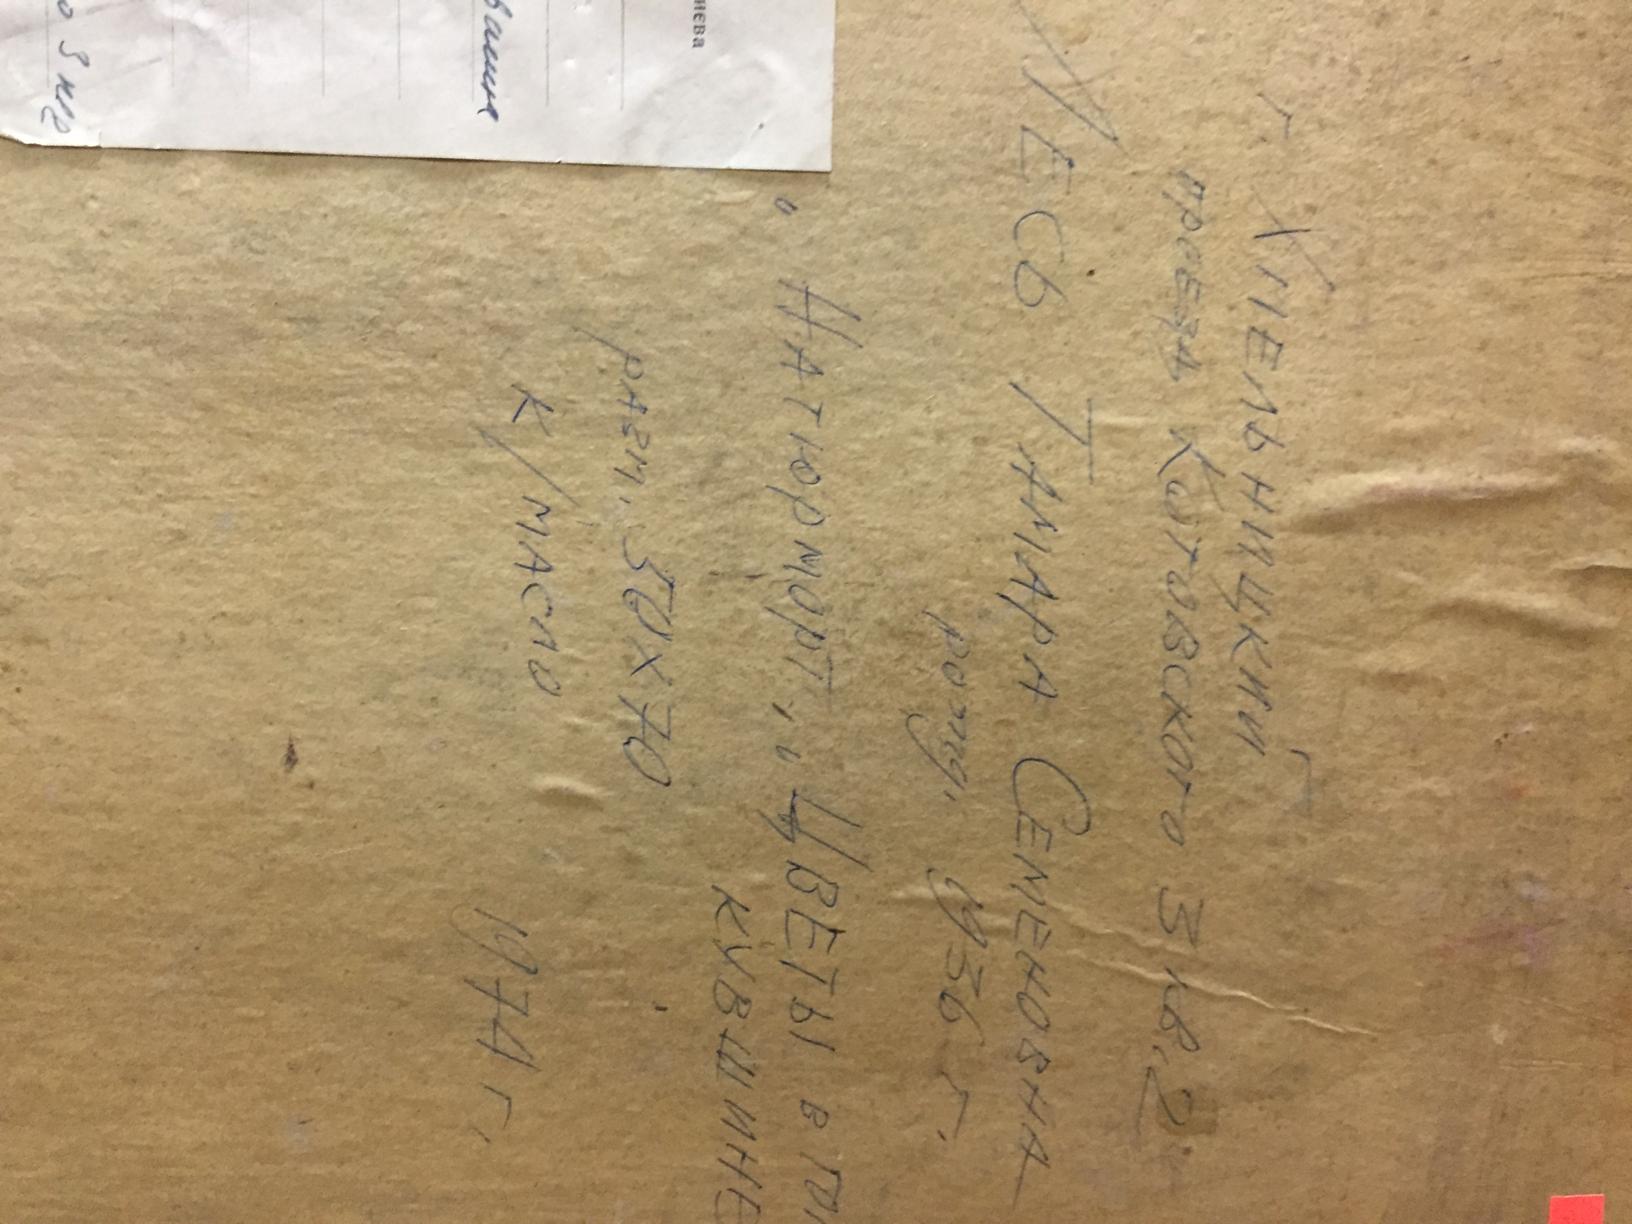 г. Хмельницкий
проезд Котовского 3 кв. 2
Лесь Тамара Семеновна
рожд. 1936 г.
"Натюрморт" "Цветы в
кувшине
разм. 50х70
к/масло
1974 г.
нева